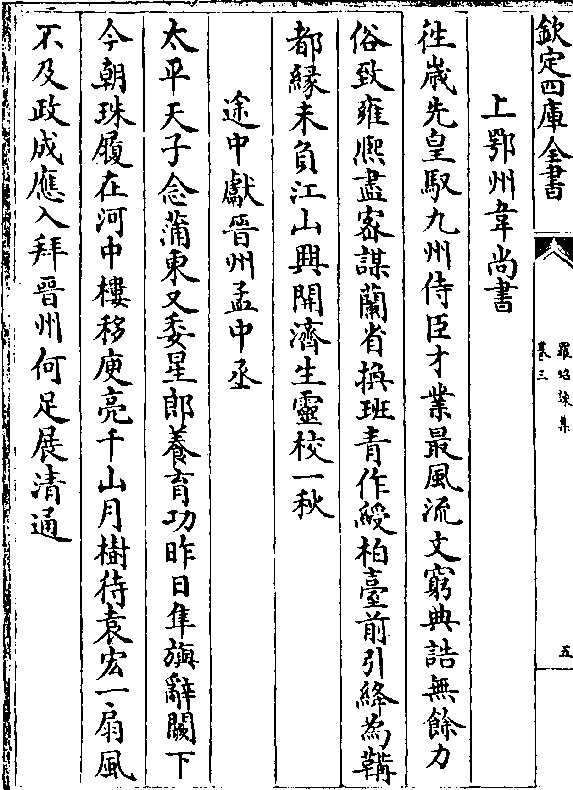 欽定四庫全書
羅昭諫集
卷三
五
上鄂州韋尚書
徃嵗先皇馭九州侍臣才業最風流文窮典誥無餘力
俗致雍熈盡宻謀蘭省換班青作綬柏臺前引絳為鞲
都縁未負江山興開濟生靈校一秋
途中獻晉州孟中丞
太平天子念蒲東又委星郎養育功昨日隼旟辭闕下
今朝珠履在河中樓移庾亮千山月樹待袁宏一扇風
不及政成應入拜晉州何足展清通